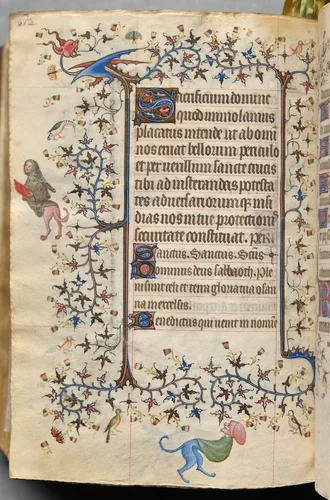 Sacrificium domine
quod immolamus
placatus intende ut ab omni
nos eruat bellorum periculo
et per vexillum sancte crucis
tibi ad insterandas potesta
tes adversariorum
dias nos in tue protectionis
securitate constituat. per
Sanctus. Sanctus. Scūs
Dominus deus sabbaoth. Ple
ni sunt celi et terra gloria tua osan
na in excelsis.
Benedictus qui venit in nomine